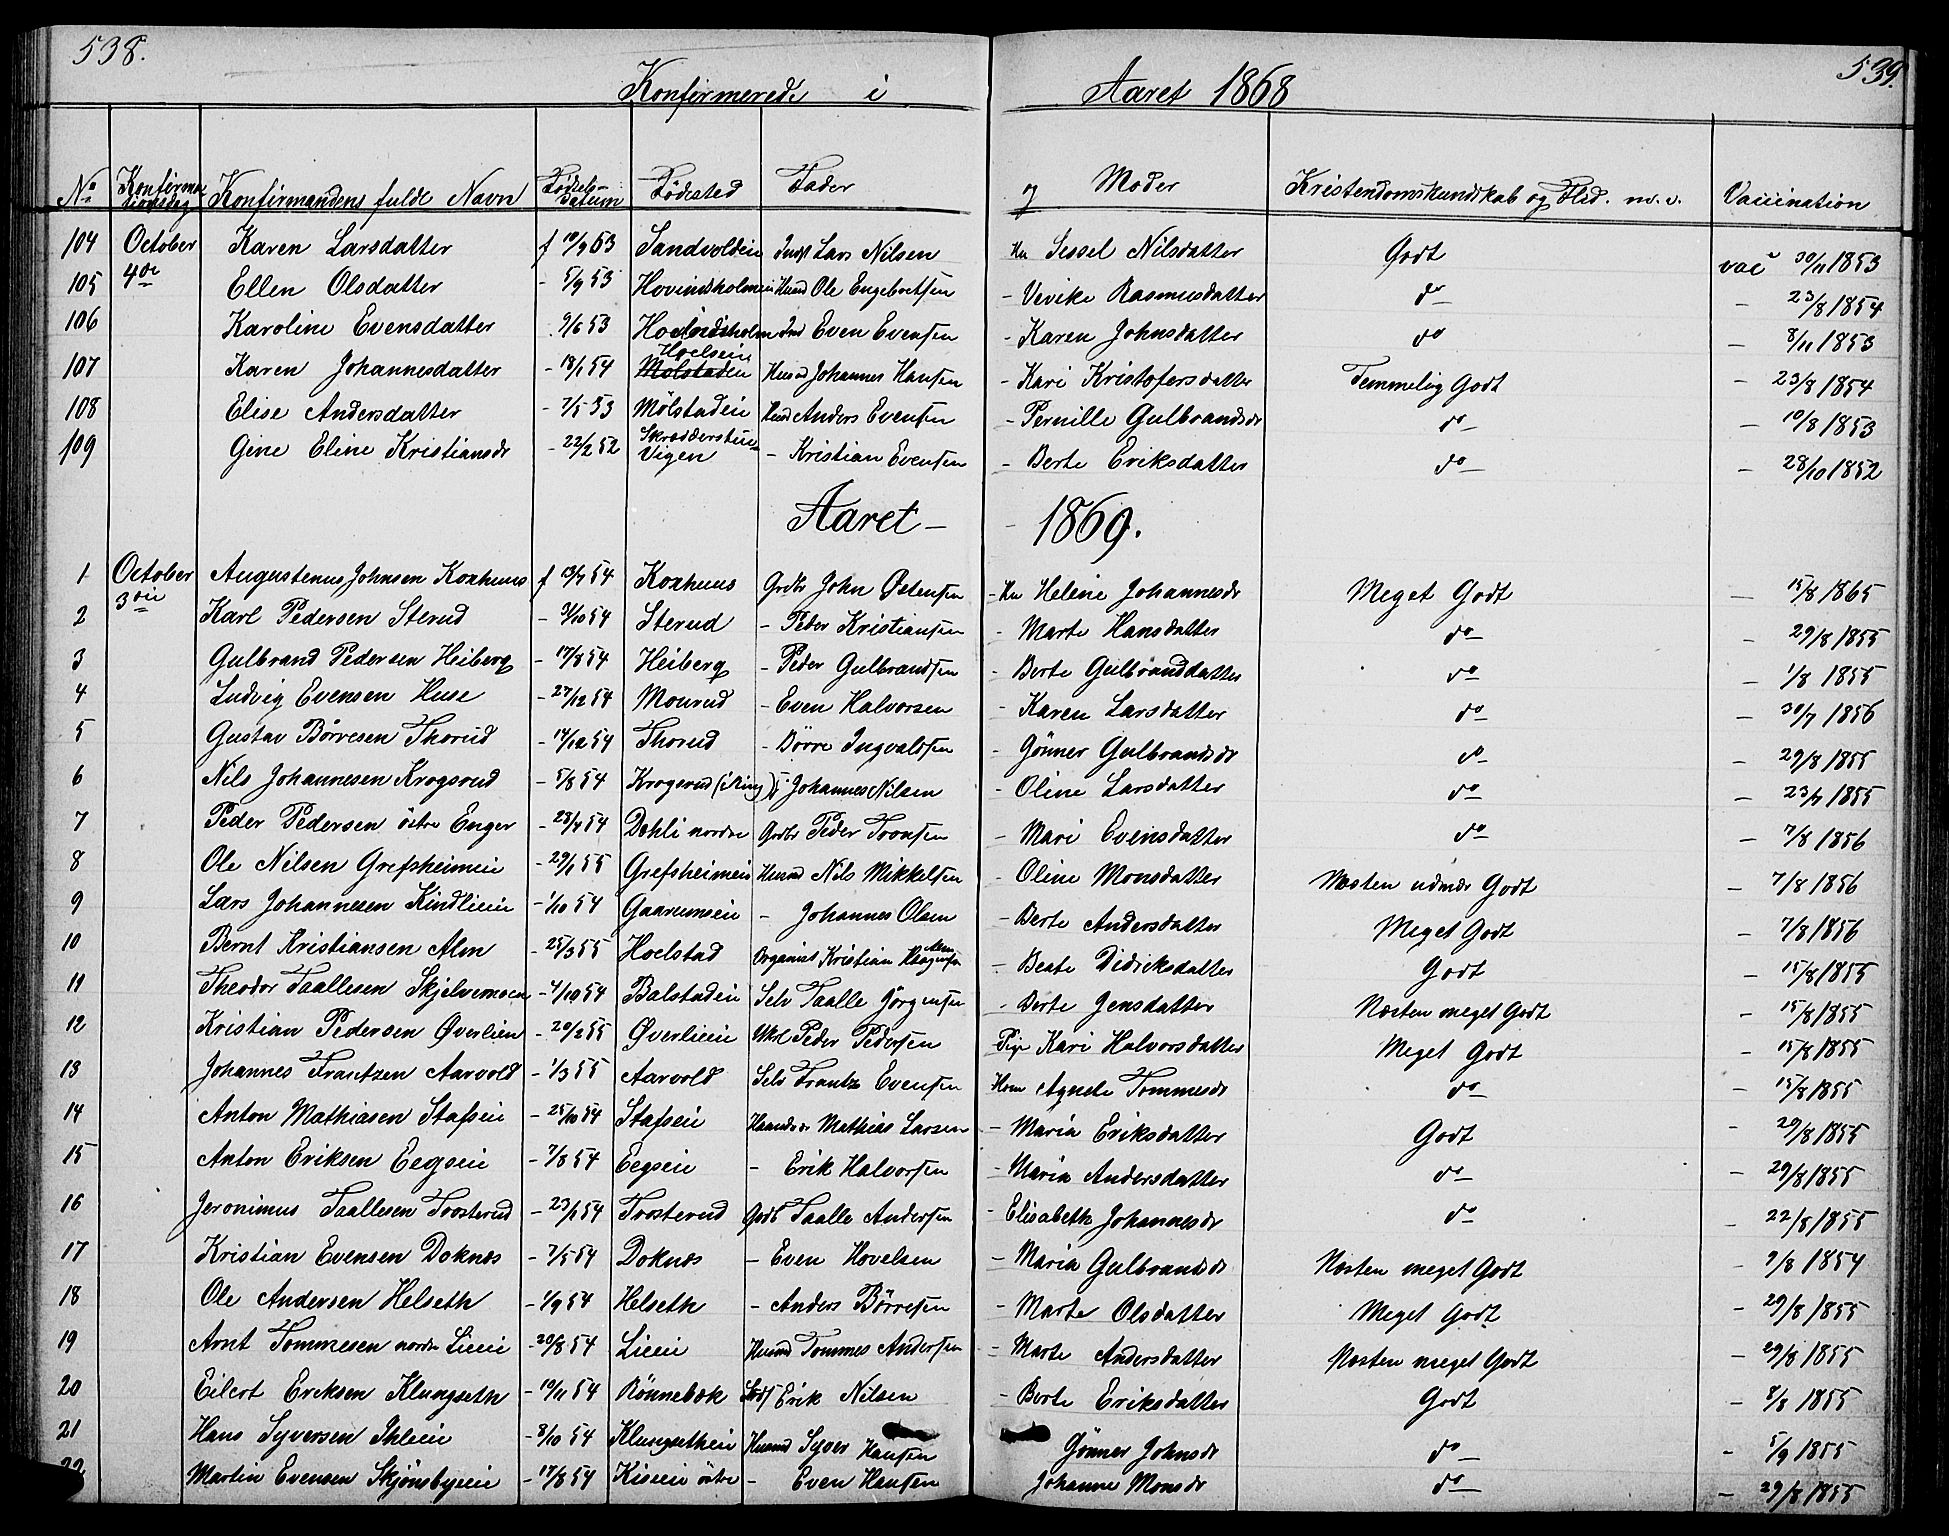 538.
539.
Konfirmerede i Aaret 1868
No Konfirma tionsdag Konfirmandens fulde Navn Fødsels-Datum Fødested Fader og Moder Kristendomskundskab og Flid. m.v. Vaccination
104 October Karen Larsdatter f 10/9 53 Sandvolden Lars Nilsen Hu Sessel Nilsdatter Godt vac 30/11 1853
105 4de Ellen Olsdatter - 5/9 53 Hovindsholmen Husm Ole Engebretsen - Vevike Rasmusdatter do - 23/8 1854
106 Karoline Evensdatter 9/6 53 Hovindsholm Ind Even Evensen - Karen Johnsdatter do - 8/11 1853
107 Karen Johannesdatter - 18/1 54 Hoelsein Molstaden Husm Johannes Hansen - Kari Kristofersdatter Temmelig Godt - 23/8 1854
108 Elise Andersdatter - 7/5 53 Mølstadein Husm Anders Evensen - Pernille Gulbrandsdr do - 10/8 1853
109 Gine Eline Kristiansdr - 22/2 52 Skrædderstuen Vigen - Kristian Evensen - Berte Eriksdatter do - 28/10 1852
Aaret - - 1869.
1 October Augustenus Johnsen Korhuus f 13/7 54 Korhuus Grdbr John Østensen - Hu Helene Johannesdr Meget Godt - 15/8 1865
2 3die Karl Pedersen Sterud - 3/10 54 Sterud - Peder Kristiansen - Marte Hansdatter do - 29/8 1855
3 Gulbrand Pedersen Heiberg - 17/8 54 Heiberg - Peder Gulbrandsen - Berte Gulbranddatter do - 1/8 1855
4 Ludvig Evensen Huse - 27/12 54 Mourud - Even Halvorsen - Karen Larsdatter do - 30/7 1856
5 Gustav Børresen Thorud - 14/12 54 Thorud - Børre Ingvaldsen - Gønner Gulbrandsdr do - 29/8 1855
6 Nils Johannesen Krogsrud - 5/8 54 Krogsrud (i Ring) - Johannes Nilsen - Oline Larsdatter do - 23/7 1855
7 Peder Pedersen østre Enger - 28/4 54 Dæhli nordre Grdbr Peder Tronsen - Mari Evensdatter do - 7/8 1856
8 Ole Nilsen Grefsheimein - 29/1 55 Grefsheimein Husmd Nils Mikkelsen - Oline Monsdatter Næsten udmær Godt - 7/8 1856
9 Lars Johannesen Kindliein - 1/10 54 Gaarumsein - Johannes Olsen - Berte Andersdatter Meget Godt - 7/8 1856
10 Bernt Kristiansen Alm - 25/3 55 Hoelstad Organist Kristian Haagensen Alm - Beate Didieksdatter Godt - 15/8 1855
11 Theodor Taallesen Skjelvemoen - 4/10 54 Balstadein Selv Taalle Jørgensen - Berte Jensdatter Næsten meget Godt - 15/8 1855
12 Kristian Pedersen Øverlien - 20/2 55 Øverliein Peder Pedersen Pige Kari Halvorsdatter Meget Godt - 15/8 1855
13 Johannes Frantzen Aarvold - 1/3 55 Aarvold Selv Frantz Evensen Hom Agnete Tommesdr do - 15/8 1855
14 Anton Mathiasen Stafsein - 25/10 54 Stafsein Mathias Larsen - Maria Eriksdatter Godt - 29/8 1855
15 Anton Eriksen Eegsein - 7/8 54 Eegsein - Erik Halvorsen - Maria Andersdatter do - 29/8 1855
16 Jeronimus Taallesen Trosterud - 23/1 54 Trosterud Grdb Taalle Andersen - Elisabeth Johannesdr do - 22/8 1855
17 Kristian Evensen Doknæs - 7/5 54 Doknæs - Even Hovelsen - Maria Gulbrandsdr Næsten meget Godt - 9/8 1854
18 Ole Andersen Helseth - 1/9 54 Helseth - Anders Børresen - Marte Olsdatter Meget Godt - 29/8 1855
19 Arnt Tommesen nordre Lieii - 20/8 54 Lieii Husmd Tommes Andersen - Marte Andersdatter Næsten meget Godt - 29/8 1855
20 Eilert Eriksen Klungseth - 19/11 54 Rønnebæk Erik Nilsen - Berte Eriksdatter Godt - 8/8 1855
21 Hans Syversen Ihlein - 8/10 54 Klungsethein Husmd Syver Hansen Gønner Johnsdr do - 5/9 1855
22 Martin Evensen Skjønsbyein - 17/8 54 Kisein østre - Even Hansen Johanne Monsdr do - 29/8 1855